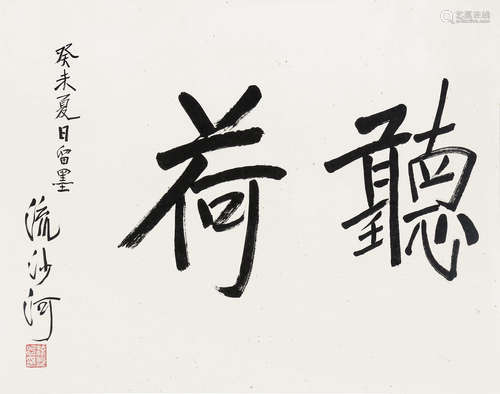 聽荷
癸未夏日留墨
流沙河